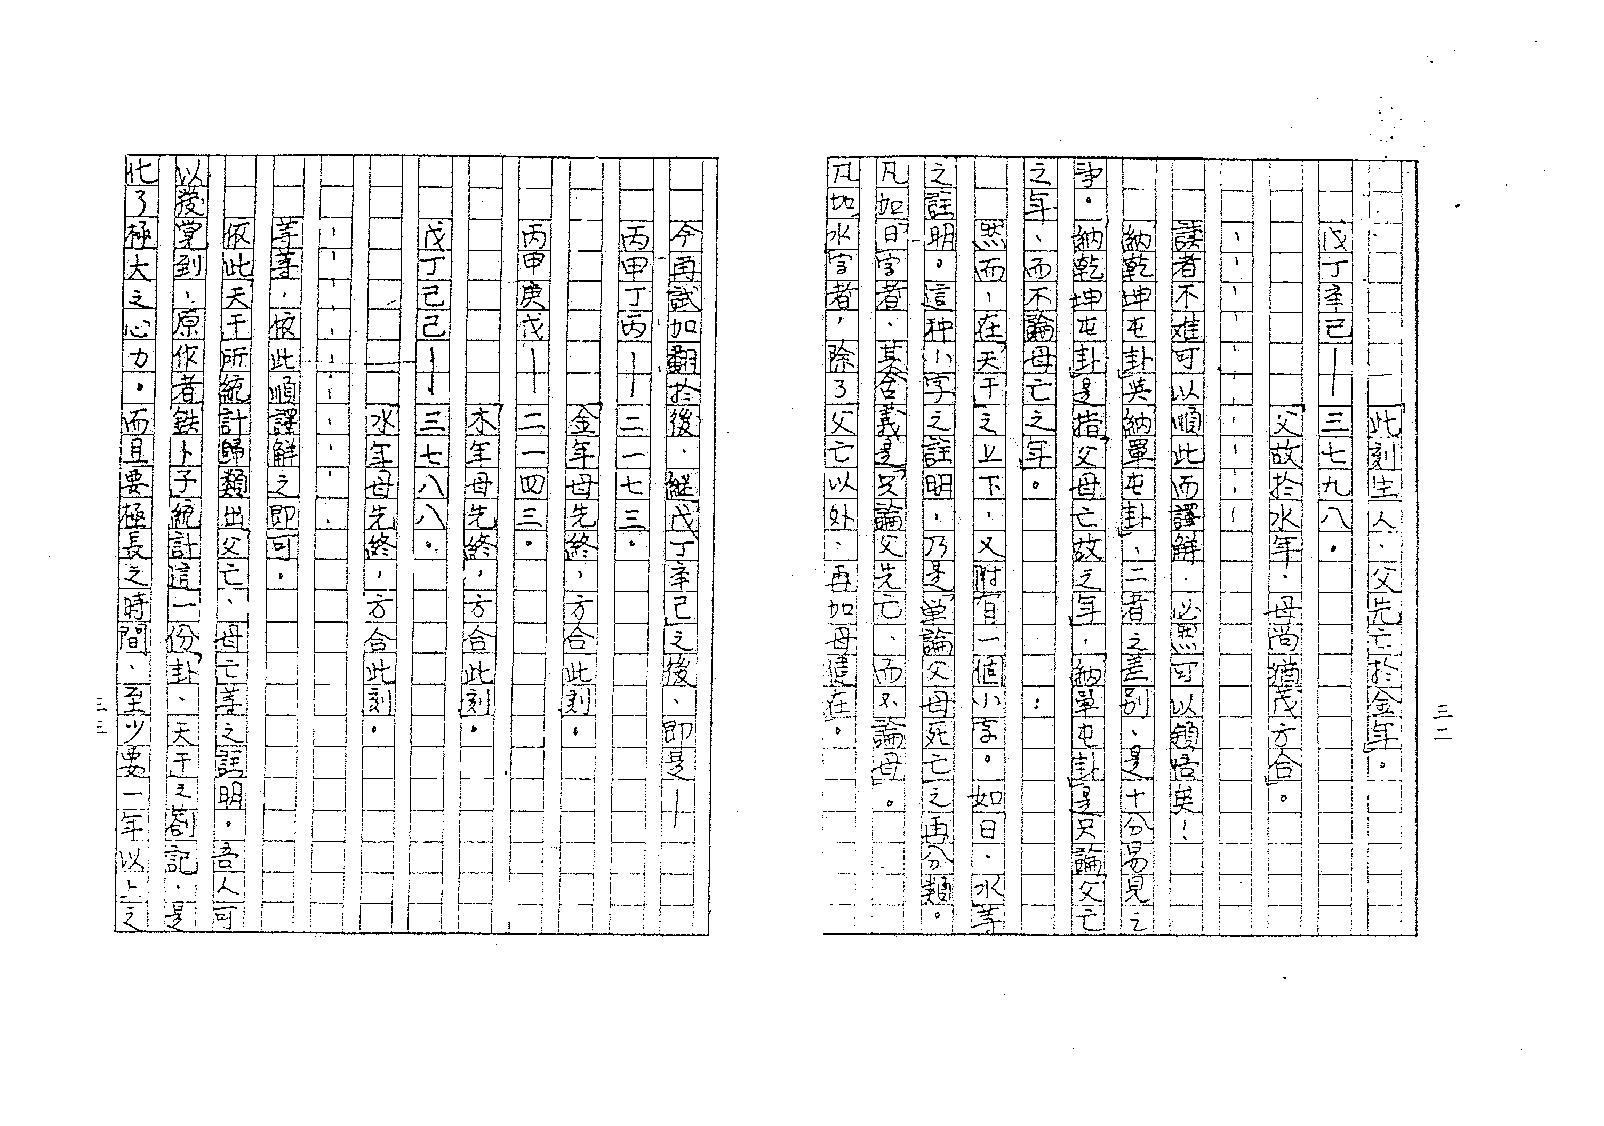 三二
「此刻生人、父先亡於金年」。
戊丁辛己——三七九八。
「父故於水年、母尚猶茂方合」。
讀者不难可以順此而譯解、必然可以領悟矣！
「納乾坤屯卦」與「納單屯卦」、二者之差別、是十分易見之
事。「納乾坤屯卦」是指「父母亡故之年」、「納單屯卦」是只論「父亡
之年、而不論母亡之年」。
然而、在「天干」之上下、又附有一個小字。如日、水等
之註明。這种小字之註明、乃是單論父母死亡之再分類。
凡如「日」字者、其含義是「只論父先亡、而不論母」。
凡如「水」字者，除了父亡以外、再如「母遠在」。
今再試加翻於後、繼「戊丁辛己」之後、即是——
丙甲丁丙——二一七三。
「金年母先終，方合此刻」。
丙甲庚戊——二一四三。
「木年母先終，方合此刻」。
戊丁己己——三七八八。
「水年母先終，方合此刻」。
等等、依此順譯解之即可。
依此「天干所統計歸類出父亡、母亡等之註明。吾人可
以發覺到、原作者「鉄卜子」統計這一份「卦、天干之劄記、是
化了極大之心力。而且要極長之時間、至少要一年以上之
三三